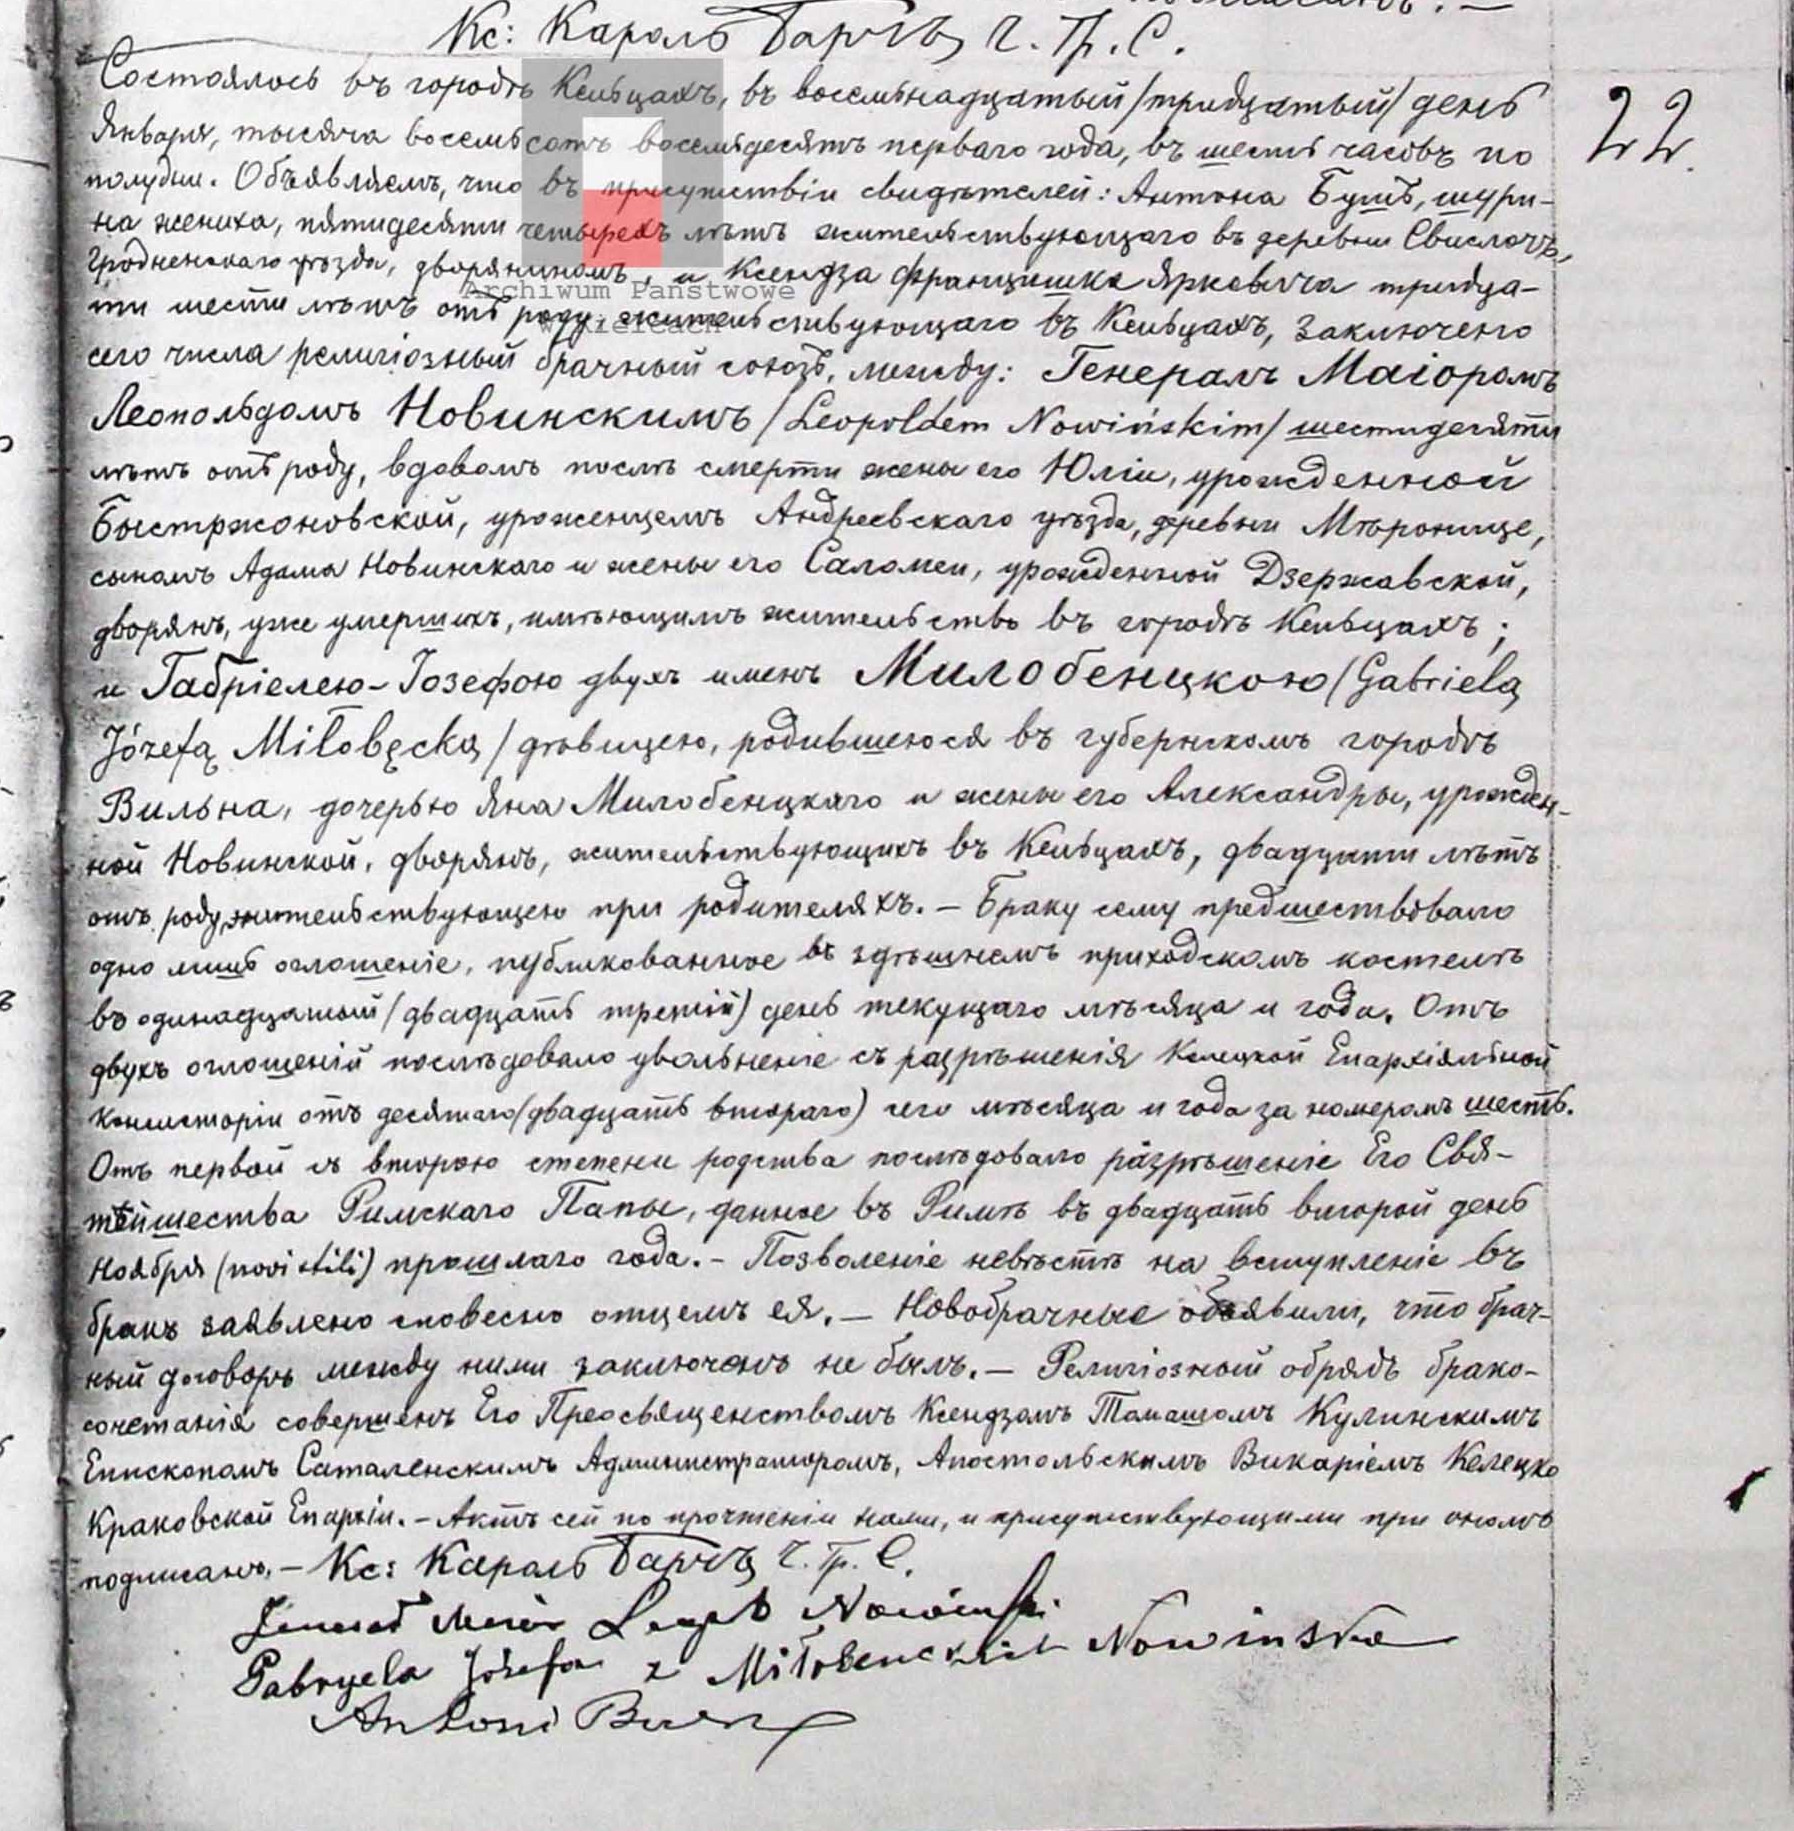 Кс: Кароль Барчъ Ч. Гр. С.
22.
Состоялось въ городѣ Кельцахъ, въ восемьнадцатый /тридцатый/ день
Января, тысяча восемьсотъ восемьдесятъ перваго года, въ шесть часовъ по
полудни. Объявляемъ, что въ присутствіи свидѣтелей: Антона Бушъ, шури-
на жениха, пятидесяти четырехъ лѣтъ жительствующаго въ деревни Свислочъ,
Гродненскаго уѣзда, дворяниномъ, и Ксендза Францишка Ярковича тридца-
ти шести лѣтъ отъ роду, жительствующаго въ Кельцахъ, заключено
сего числа религіозный брачный союзъ, между: Генералъ Маіоромъ
Леопольдомъ Новинскимъ /Leopoldem Nowińskim/ шестидесяти
лѣтъ отъ роду, вдовомъ послѣ смерти жены его Юліи, урожденной
Быстржоновской, уроженцемъ Андреевскаго уѣзда, деревни Мѣронице,
сыномъ Адама Новинскаго и жены его Саломеи, урожденной Дзержавской,
дворянъ, уже умершихъ, имѣющимъ жительство въ городѣ Кельцахъ;
и Габріелею-Іозефою двухъ именъ Милобенцкою (Gabrielą
Józefą Miłobęcką / дѣвицею, родившеюся въ губернскомъ городѣ
Вильна, дочерью Яна Милобенцкаго и жены его Александры, урожден-
ной Новинской, дворянъ, жительствующихъ въ Кельцахъ, двадцати лѣтъ
отъ роду, жительствующею при родителяхъ. — Браку сему предшествовало
одно лишь оглошеніе, публикованное въ здѣшнемъ приходскомъ костелѣ
въ одинадцатый /двадцать третій) день текущаго мѣсяца и года. Отъ
двухъ оглошеній послѣдовало увольненіе съ разрѣшенія Келецкой Епархіяльной
Консисторіи отъ десятаго (двадцать втораго) сего мѣсяца и года за номеромъ шесть.
Отъ первой съ второю степени родства послѣдовало разрѣшеніе Его Свя-
тѣйшества Римскаго Папы, данное въ Римѣ въ двадцать второй день
Ноября (novi stili) прошлаго года. — Позволеніе невѣстѣ на вступленіе въ
бракъ заявлено словесно отцемъ ея. — Новобрачные объявили, что брач-
ный договоръ между ними заключенъ не былъ. — Религіозный обрядъ брако-
сочетанія совершенъ Его Преосвященствомъ Ксендзомъ Томашомъ Кулинскимъ
Епископомъ Саталенскимъ Администраторомъ, Апостольскимъ Викаріемъ Келецко
Краковской Епархіи. — Актъ сей по прочтеніи нами, и присутствующими при ономъ
подписанъ. — Кс: Кароль Барчъ Ч. Гр. С.
Leopold Nowiński
Gabryela Józefa z Miłobenckich Nowinska
Antoni
Archiwum Państwowe
w Kielcach